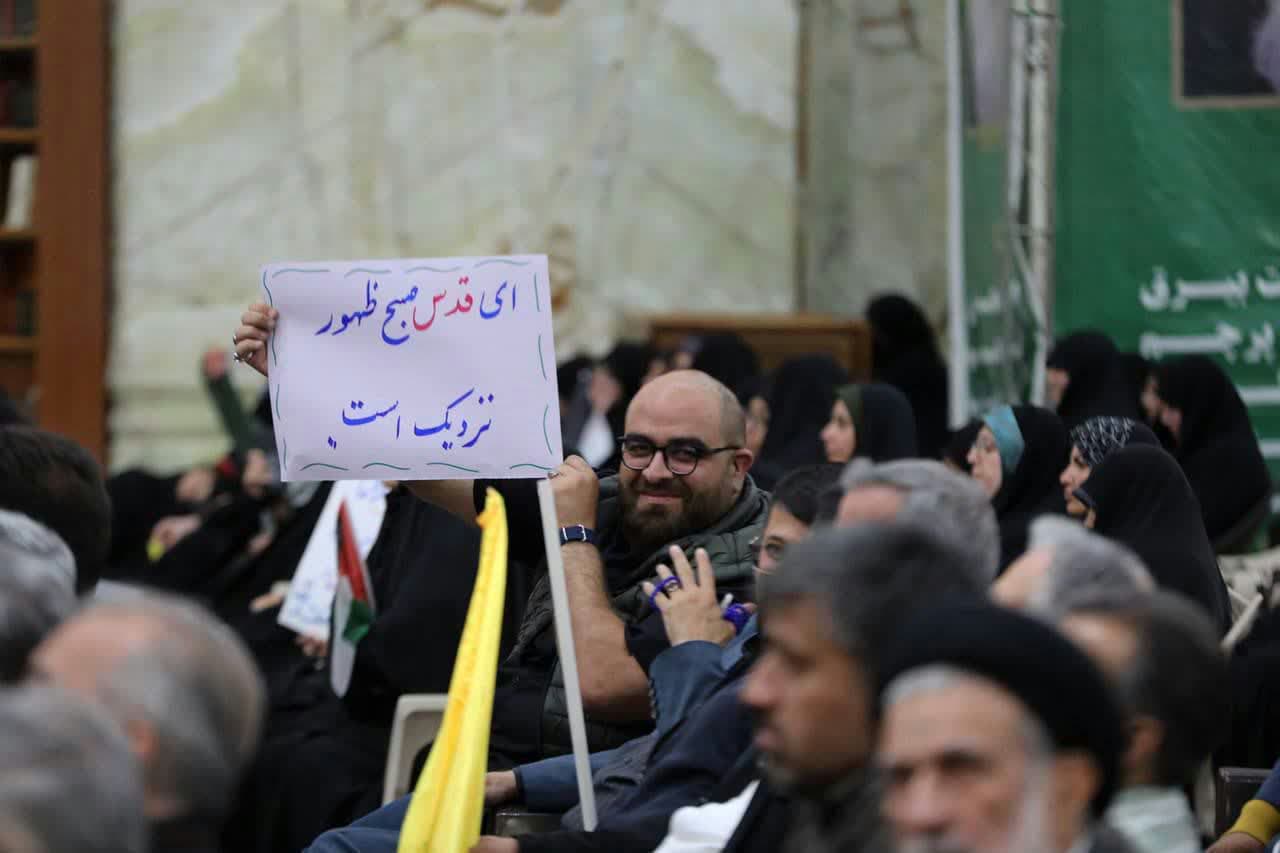 ای قدس صبح ظهور
نزدیک است
بیرق
پرچم